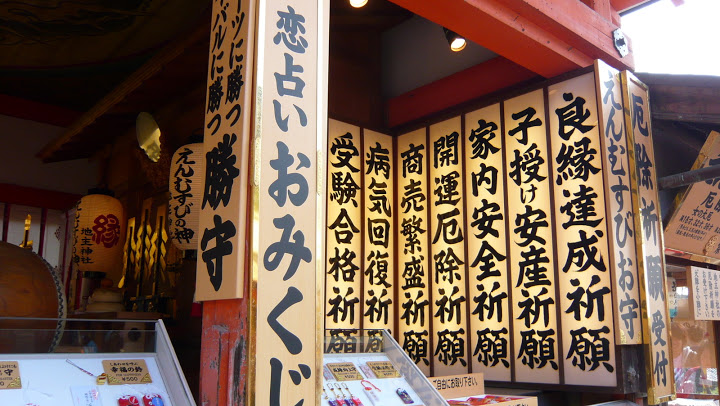 えんむすびの神
縁
地主神社
ツに勝つ
バルに勝つ
勝守
恋占いおみくじ
受験合格祈願
病気回復祈願
商売繁盛祈願
開運厄除祈願
家内安全祈願
子授け安産祈願
良縁達成祈願
えんむすびお守
厄除祈願受付
幸福の鈴
¥500
ご自由にお